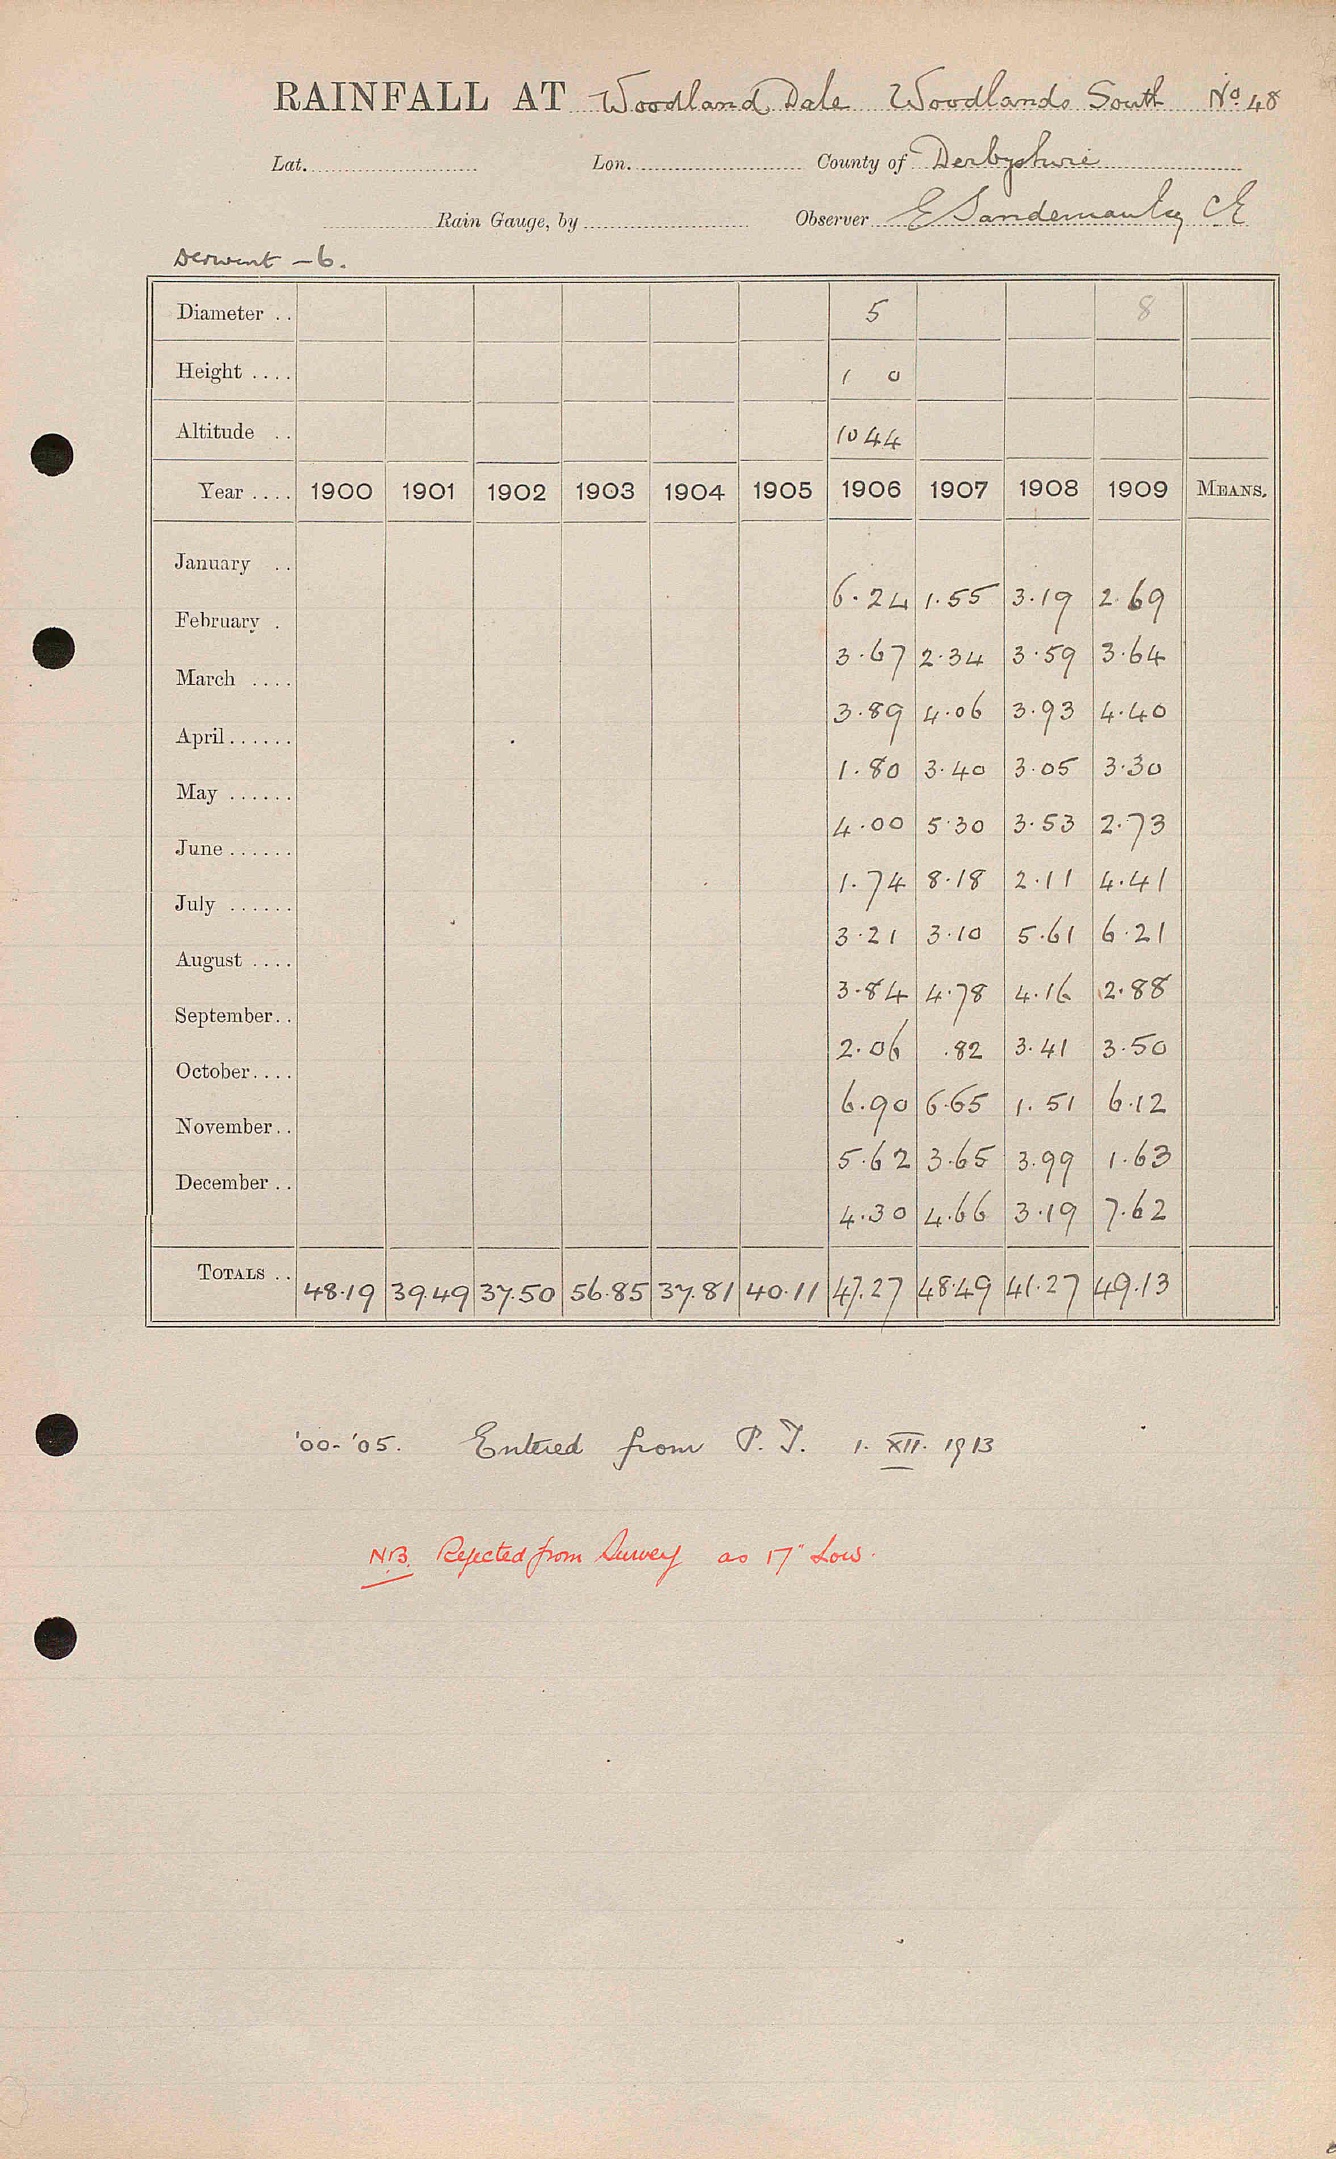 RAINFALL AT Woodland Dale Woodlands South No. 48
Lat. Lon. County of Derbyshire
Rain Gauge, by Observer E Sandeman Esq CE
Derwent - 6.
Diameter . . 5 8
Height . . . . 1 0
Altitude . . 1044
Year . . . . 1900 1901 1902 1903 1904 1905 1906 1907 1908 1909 MEANS.
January . . 6.24 1.55 3.19 2.69
February . 3.67 2.34 3.59 3.64
March . . . . 3.89 4.06 3.93 4.40
April . . . . . . 1.80 3.40 3.05 3.30
May . . . . . . 4.00 5.30 3.53 2.73
June . . . . . . 1.74 8.18 2.11 4.41
July . . . . . . 3.21 3.10 5.61 6.21
August . . . . 3.84 4.78 4.16 2.88
September . . 2.06 .82 3.41 3.50
October . . . . 6.90 6.65 1.51 6.12
November . . 5.62 3.65 3.99 1.63
December . . 4.30 4.66 3.19 7.62
TOTALS . . 48.19 39.49 37.50 56.85 37.81 40.11 47.27 48.49 41.27 49.13
'00-'05. Entered from P. T. 1. XII. 1913
N.B. Rejected from Survey as 17" Low.